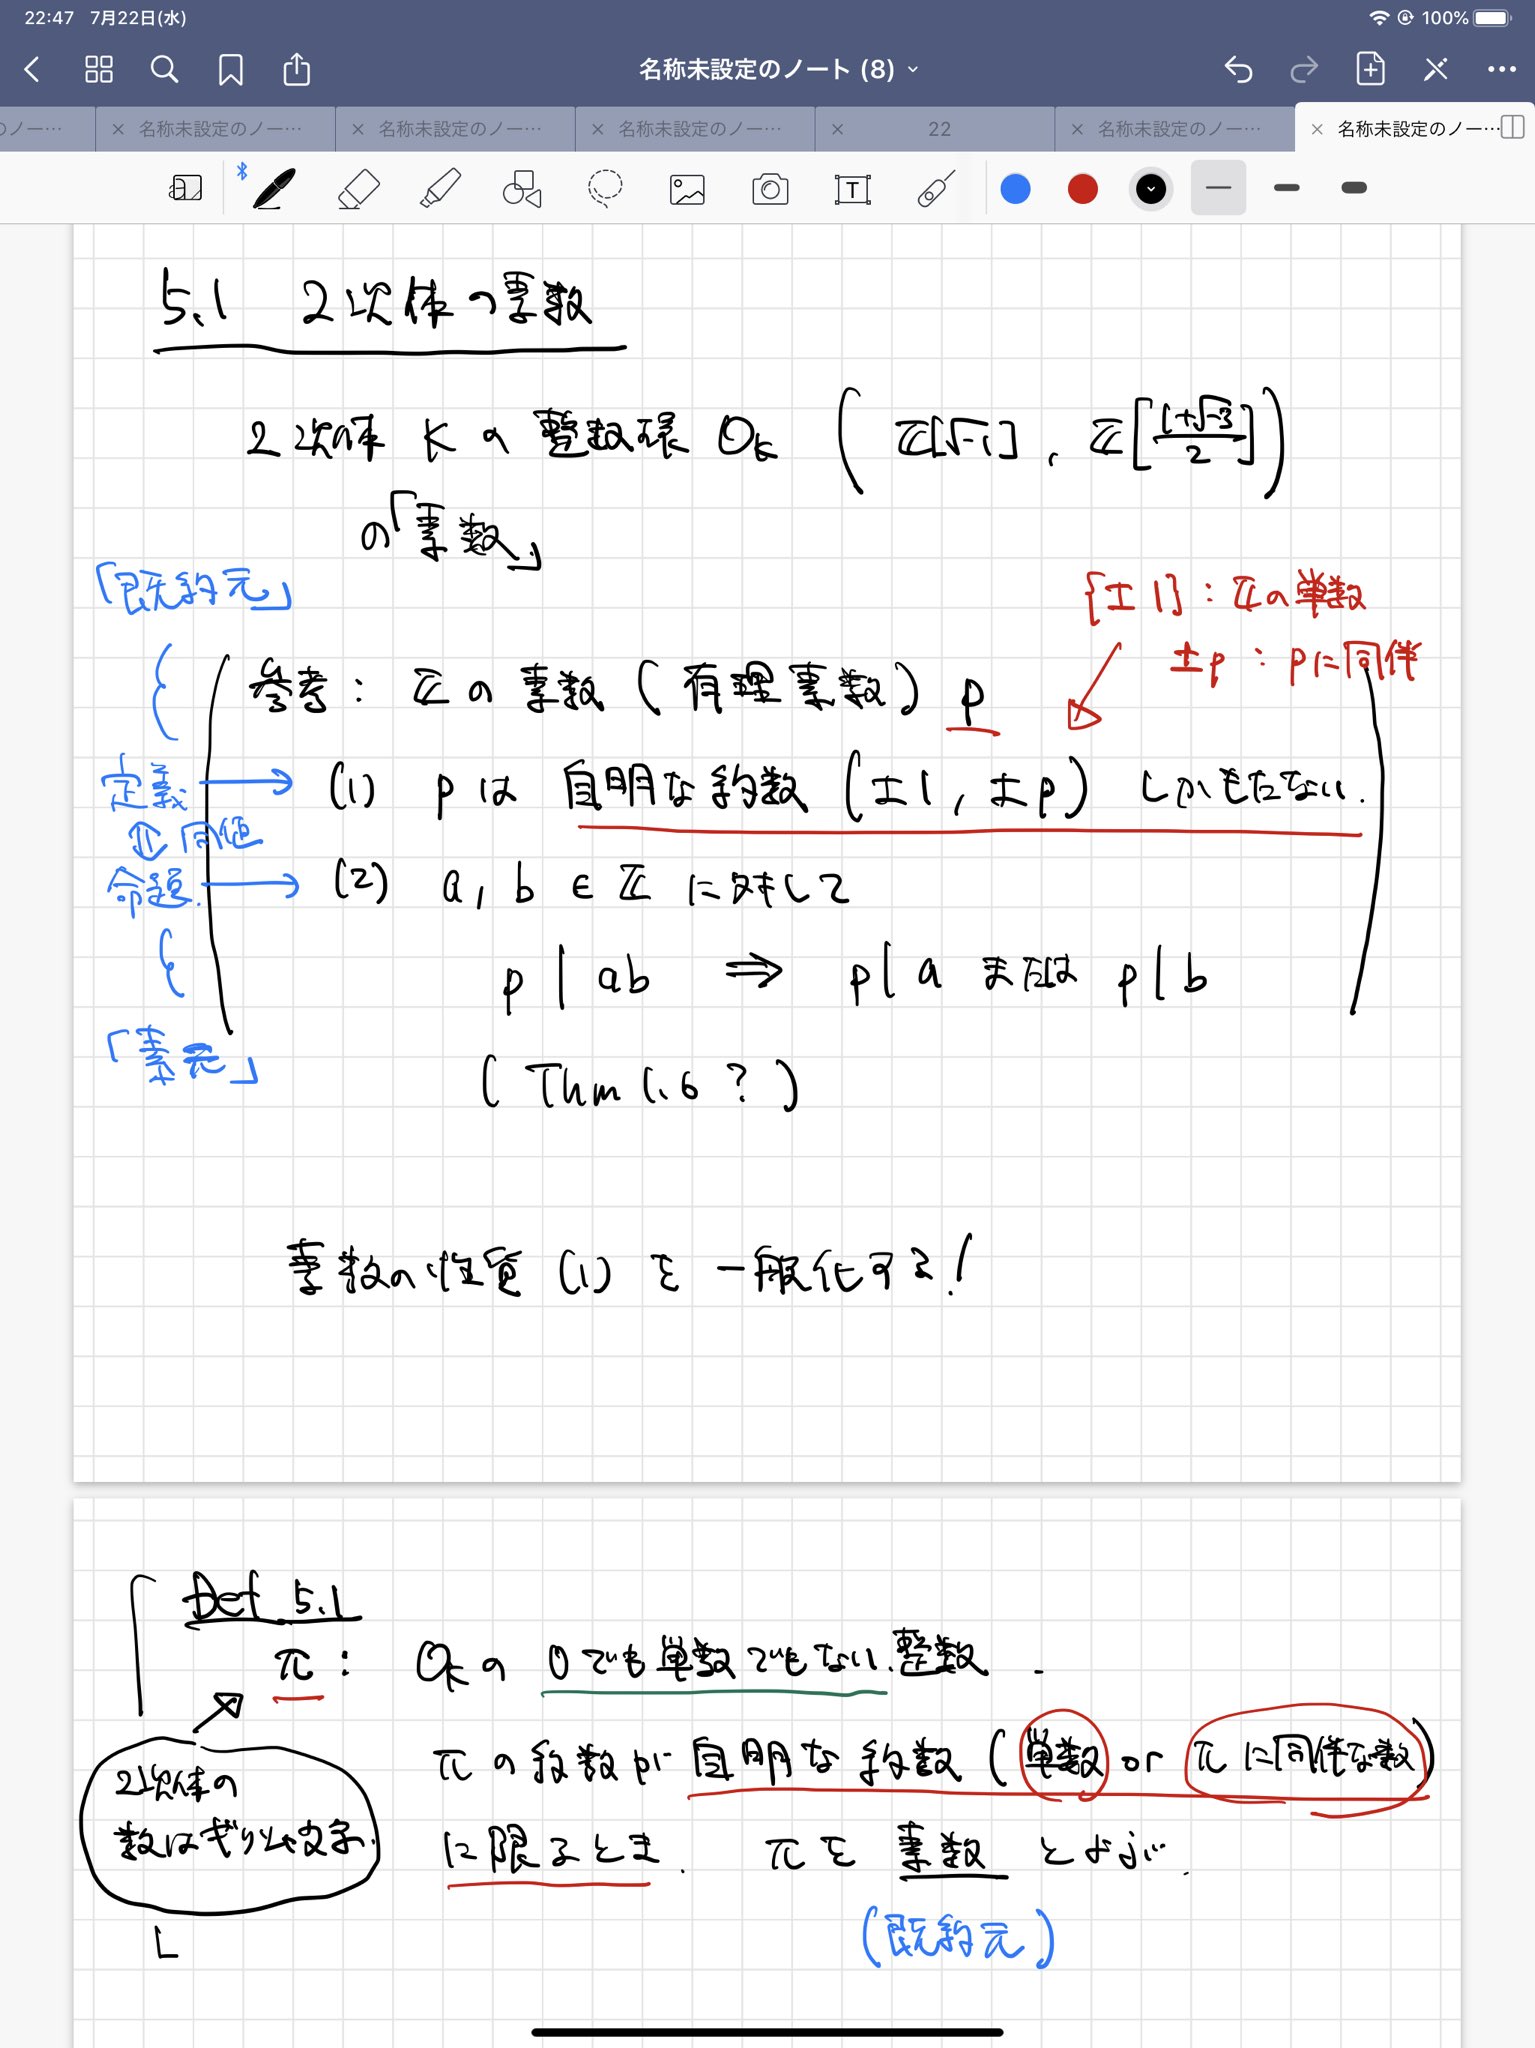 22:47 7月22日(水)
100%
名称未設定のノート (8)
のノー…
名称未設定のノー…
名称未設定のノー…
名称未設定のノー…
22
名称未設定のノー…
名称未設定のノー…
5.1 2次体の素数
2次体 K の整数環 O_K ( ℤ[√-1], ℤ[(1+√-3)/2] )
の「素数」
「既約元」
{±1} : ℤの単数
±p : pに同伴
参考: ℤの素数(有理素数) p
定義 → (1) pは 自明な約数 (±1, ±p) しかもたない.
⇕ 同値
命題. → (2) a, b ∈ ℤ に対して
p | ab ⇒ p | a または p | b
「素元」
(Thm 1.6 ?)
素数の性質 (1) を一般化する!
Def 5.1
π : O_K の 0でも単数でもない整数.
πの約数が自明な約数(単数 or πに同伴な数)
2次体の
数はギリシャ文字.
に限るとき. πを素数とよぶ.
(既約元)